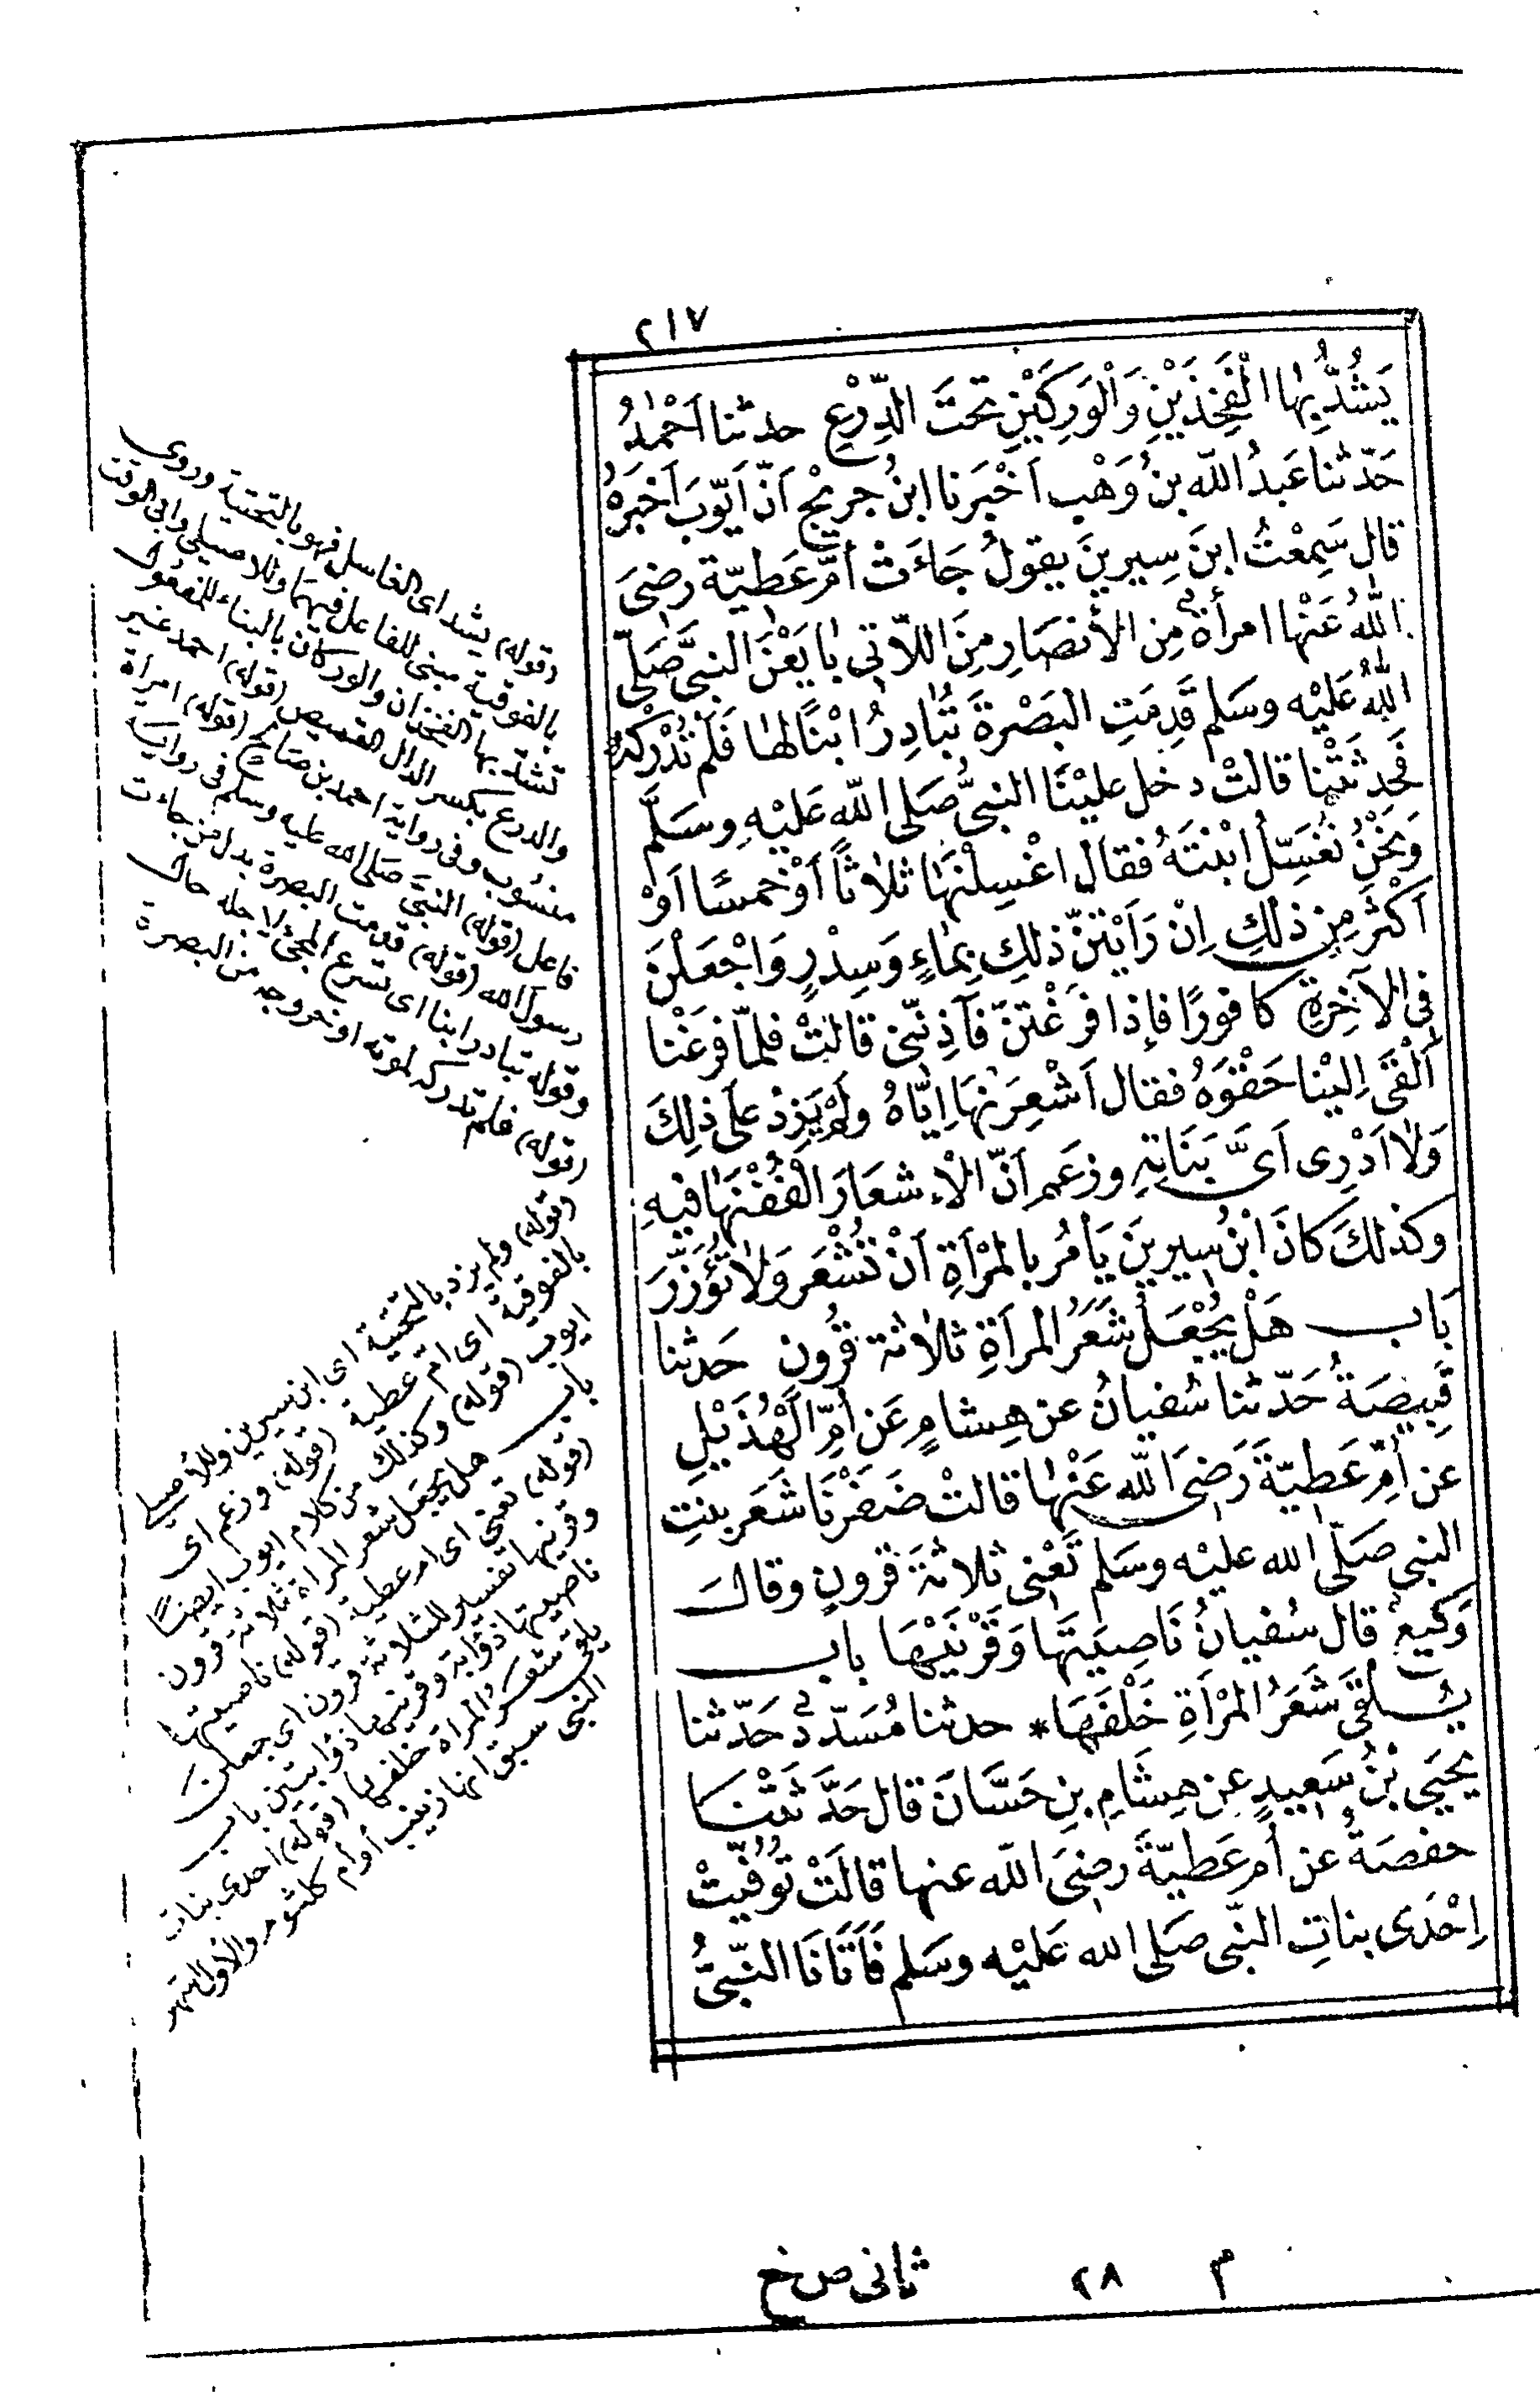 ٢١٧
يَشُدُّ بِهَا الْفَخِذَيْنِ وَالْوَرِكَيْنِ تَحْتَ الدِّرْعِ حدثنا اَحْمَدُ
حَدّثنا عَبدُ اللّه بنُ وَهْبٍ اَخْبَرَنا ابنُ جريْجٍ اَنّ اَيّوبَ اَخبَرَهُ
قال سَمِعْتُ ابنَ سِيرينَ يقولُ جَاءَتْ اُمّ عَطِيّة رضىَ
اللّٰهُ عَنْها امرأةٌ مِن الأنصَارِ مِنَ اللاّتى بايَعْنَ النبىَّ صَلّى
اللّٰهُ عَلَيْه وسَلم قَدِمَتِ البَصْرةَ تُبَادِرُ ابْنًا لهَا فَلَمْ تُدْرِكهُ
فَحدثَتْنا قالتْ دخل علَيْنَا النبىُّ صَلى اللّه عَليْهِ وسَلَّم
وَنَحْنُ نُغَسِّلُ ابْنتَهُ فقال اغْسِلْنَهَا ثلاثاً اَوْ خمسًا اَوْ
اَكْثَر مِن ذلكِ اِنْ رَاَيْتنّ ذلكِ بِمَاءٍ وَسِدْرٍ وَاجْعَلْنَ
فى الآخِرةِ كافورًا فإذا فرَغْتنّ فَآذِنّنى قالتْ فلمّا فرَغْنا
اَلْقَى اِليْنا حَقْوَهُ فقال اَشْعِرْنهَا اِيّاهُ ولَمْ يَزِدْ عَلى ذلِكَ
وَلا اَدْرِى اَىّ بَنَاتِهِ وزعَم اَنّ الْاِشعَارَ الْفُفْنَهَا فيهِ
وكذلكَ كانَ ابْنُ سِيرينَ يَامُر بالمرْأَةِ اَنْ تُشْعَر وَلا تُؤَزَّرَ
بَاب هَلْ يُجْعَلُ شَعَرُ المرأةِ ثلاثة قُرُونٍ حَدثنا
قَبِيصَةُ حَدّثنا سُفيانُ عن هِشامٍ عَن اُمِّ الْهُذَيْلِ
عن اُمّ عَطِيّةَ رَضىَ اللّه عَنْها قالتْ ضَفَرْنَا شَعَر بنتِ
النبى صَلّى الله عليْه وسَلم تَعْنى ثلاثةَ قرونٍ وقالَ
وَكيعٌ قال سُفيانُ نَاصِيَتَها وَقَرْنَيْهَا باب
يُلقَى شَعَرُ المرْأَةِ خَلْفَهَا * حدثنا مُسَدّدٌ حَدّثنا
يَحْيَى بْنُ سَعِيدٍ عن هِشَامِ بنِ حَسَّانَ قال حَدَّثتْنا
حفصَةُ عن اُم عَطِيّةَ رضىَ اللّه عنها قالَتْ تُوُفّيتْ
اِحْدَى بناتِ النّبى صَلى الله عَليْه وسَلم فَأَتَانَا النّبىُّ
(قوله) يشد اى الغاسل فهو بالتحتية وروى
بالفوقية مبنى للفاعل فيهما وللاصيلى وابى الوقت
تشدّ بها الفخذان والوركان بالبناء للمفعول
والدرع بكسر الدال القميص (قوله) احمد غير
منسوب وفى رواية احمد بن صَالح (قوله) امرأة
فاعل (قوله) النبىّ صَلى الله عليه وسلم فى رواية
رسول الله (قوله) قدمت البصرة بدل من جاءت
وقوله تبادر ابنا اى تسرع المجئ لاجله حال
(قوله) فلم تدركه لموته او خروجه من البصرة
(قوله) ولم يزد بالتحتية اى ابن سيرين وللأصيلى
بالفوقية اى ام عطية (قوله) وزعم اى
ايوب (قوله) وكذلك من كلام ايوب ايضًا
باب هل يجعل شعر المرأة ثلاثة قرون
(قوله) تعنى اى ام عطية (قوله) ناصيتها
وقرنيها تفسير للثلاثة قرون اى جعلن
ناصيتها ذؤابة وقرنيها ذؤابتين باب
يلقى شعر المرأة خلفها (قوله) احدى بنات
النبى سبق انها زينب أو أم كلثوم والأول اشهر
م ٢٨ ثانى ص خ